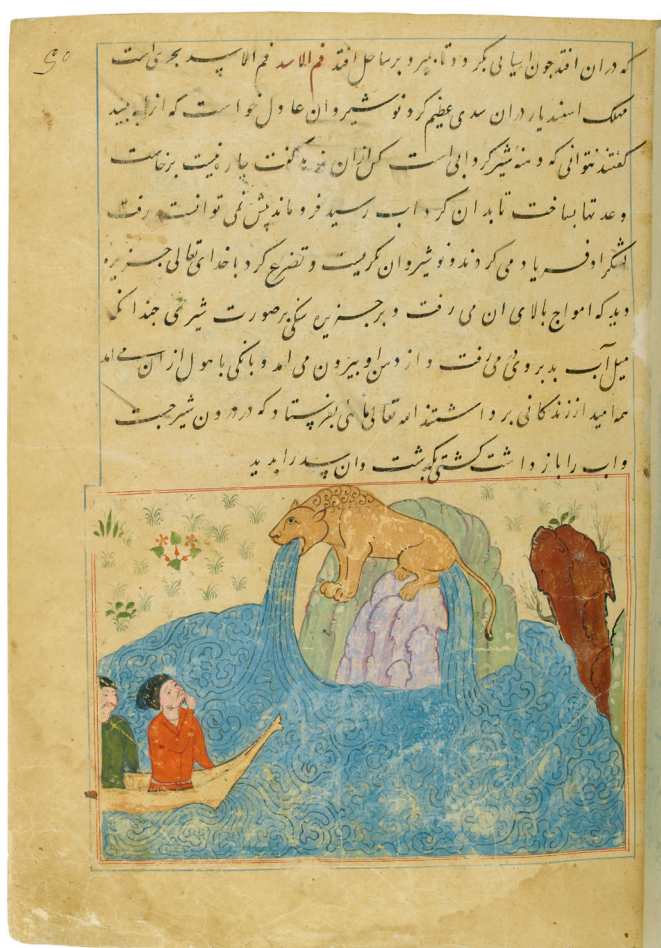 ۵۰
که در ان افتد جون اسیابی بگردد تا بمیرد و بر ساحل افتد فم الاسد فم الاسد بحری است
مهلک اسفندیار در ان سدی عظیم کرد نوشیروان عادل خواست که از او ببیند
کفتند نتوانی که دهنه شیر کردابی است کس از ان نرهد کفت چاره نیست برخاست
و عدتها بساخت تا بدان کرداب رسید فرو ماند پیش نمی توانست رفت
لشکر او فریاد می کردند و نوشیروان بکریست و تضرع کرد با خدای تعالی جزیره
دید که امواج بالای ان می رفت و بر جزیره سنکی بر صورت شیری چندانک
میل آب بدبر وی می رفت و از دهن او بیرون می امد و بانکی با هول از ان می امد
همه امید از زندکانی برداشتند الله تعالی ماهئی بفرستاد که در درون شیر جست
واب را باز داشت کشتی بکذشت وان سد را بدید